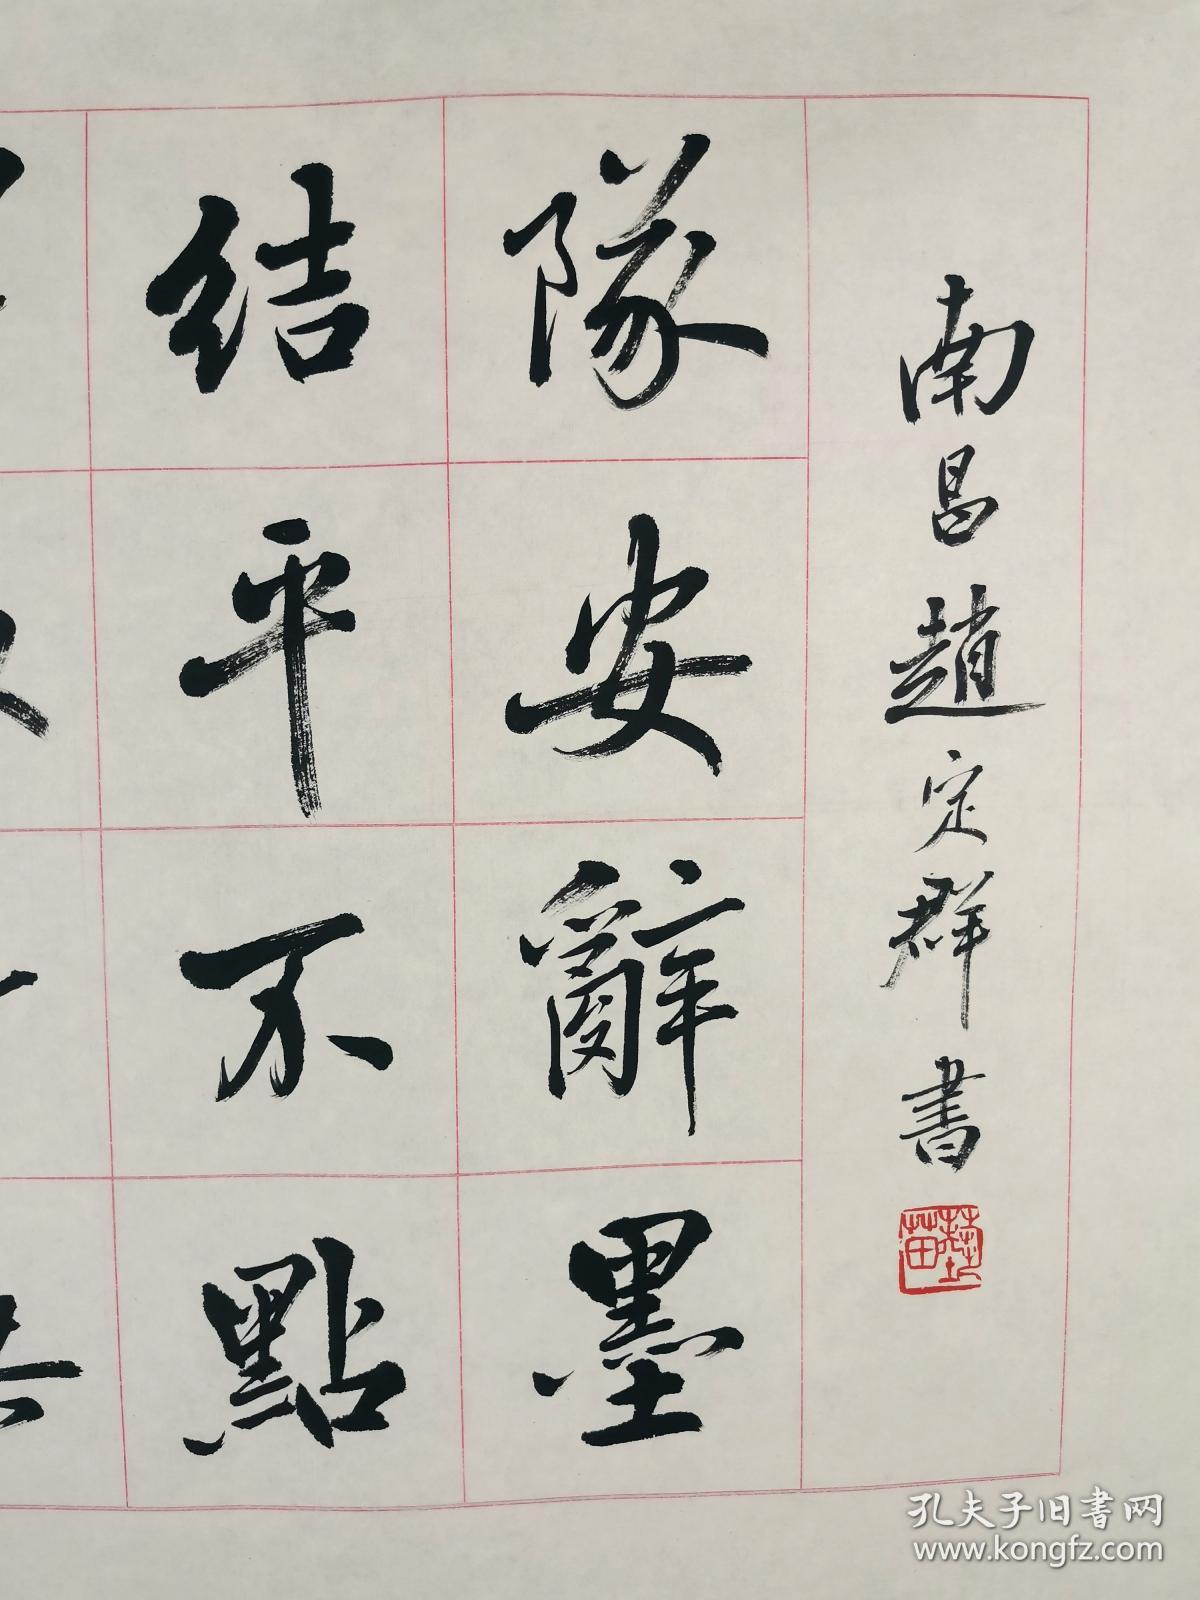 結隊
平安
不辭
點墨
南昌趙定群書
藝苗
孔夫子旧书网
www.kongfz.com